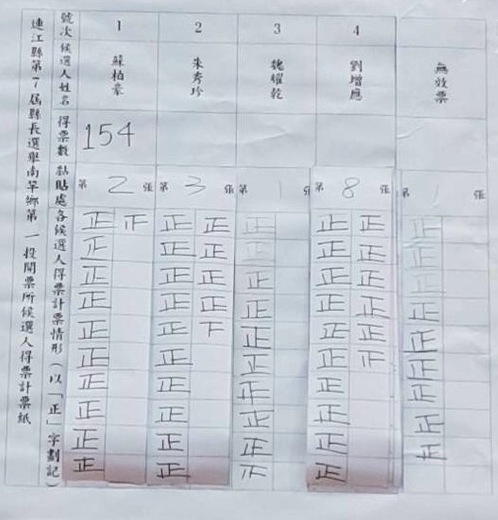 連江縣第7屆縣長選舉南竿鄉第一投開票所候選人得票計票紙
號次 1 2 3 4
候選人姓名 蘇柏豪 朱秀珍 魏耀乾 劉增應 無效票
得票數 154
黏貼處各候選人得票計票情形(以「正」字劃記)
第 2 張 第 3 張 第 1 張 第 8 張 第 1 張
正 正 正 正 正 正 正
正 正 正 正 正 正 正
正 正 正 正 正 正 正
正 正 正 正 正 正 正
正 正 下 正 正 正 正
正 正 正 正 正
正 正 正 正 正
正 正 正 正 正
正 正 正 正 正
正 正 正